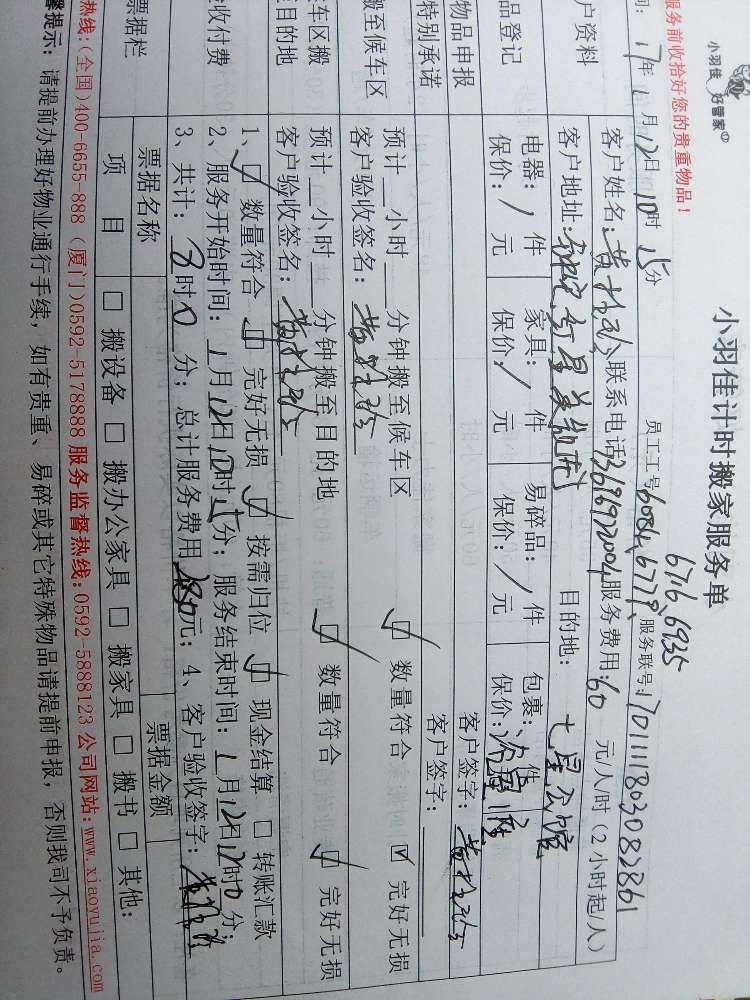 小羽佳 好管家
小羽佳计时搬家服务单
服务前收拾好您的贵重物品！
6716 6935
间：17年1月12日10时15分 员工工号6084、6779、服务联号：1701111803082861
户资料
客户姓名： 联系电话13696972004服务费用：60元/人/时（2小时起/人）
客户地址： 目的地：七星公馆
品登记
电器：/件 家具：/件 易碎品：/件 包裹：件
保价：/元 保价：/元 保价：/元 保价：
物品申报 客户签字：
特别承诺 客户签字：
搬至候车区
预计 小时 分钟搬至候车区 数量符合 完好无损
客户验收签名：
车区搬
至目的地
预计 小时 分钟搬至目的地 数量符合 完好无损
客户验收签名：
收付费
1、数量符合 完好无损 按需归位 现金结算 转账汇款
2、服务开始时间：1月12日10时15分；服务结束时间：1月12日12时0分；
3、共计：时0分；总计服务费用元；4、客户验收签字：
票据栏
票据名称 票据金额
项目 搬设备 搬办公家具 搬家具 搬书 其他：
热线:(全国)400-6655-888 (厦门)0592-5178888 服务监督热线:0592-5888123 公司网站:www.xiaoyujia.com
馨提示：请提前办理好物业通行手续，如有贵重、易碎或其它特殊物品请提前申报，否则我司不予负责。